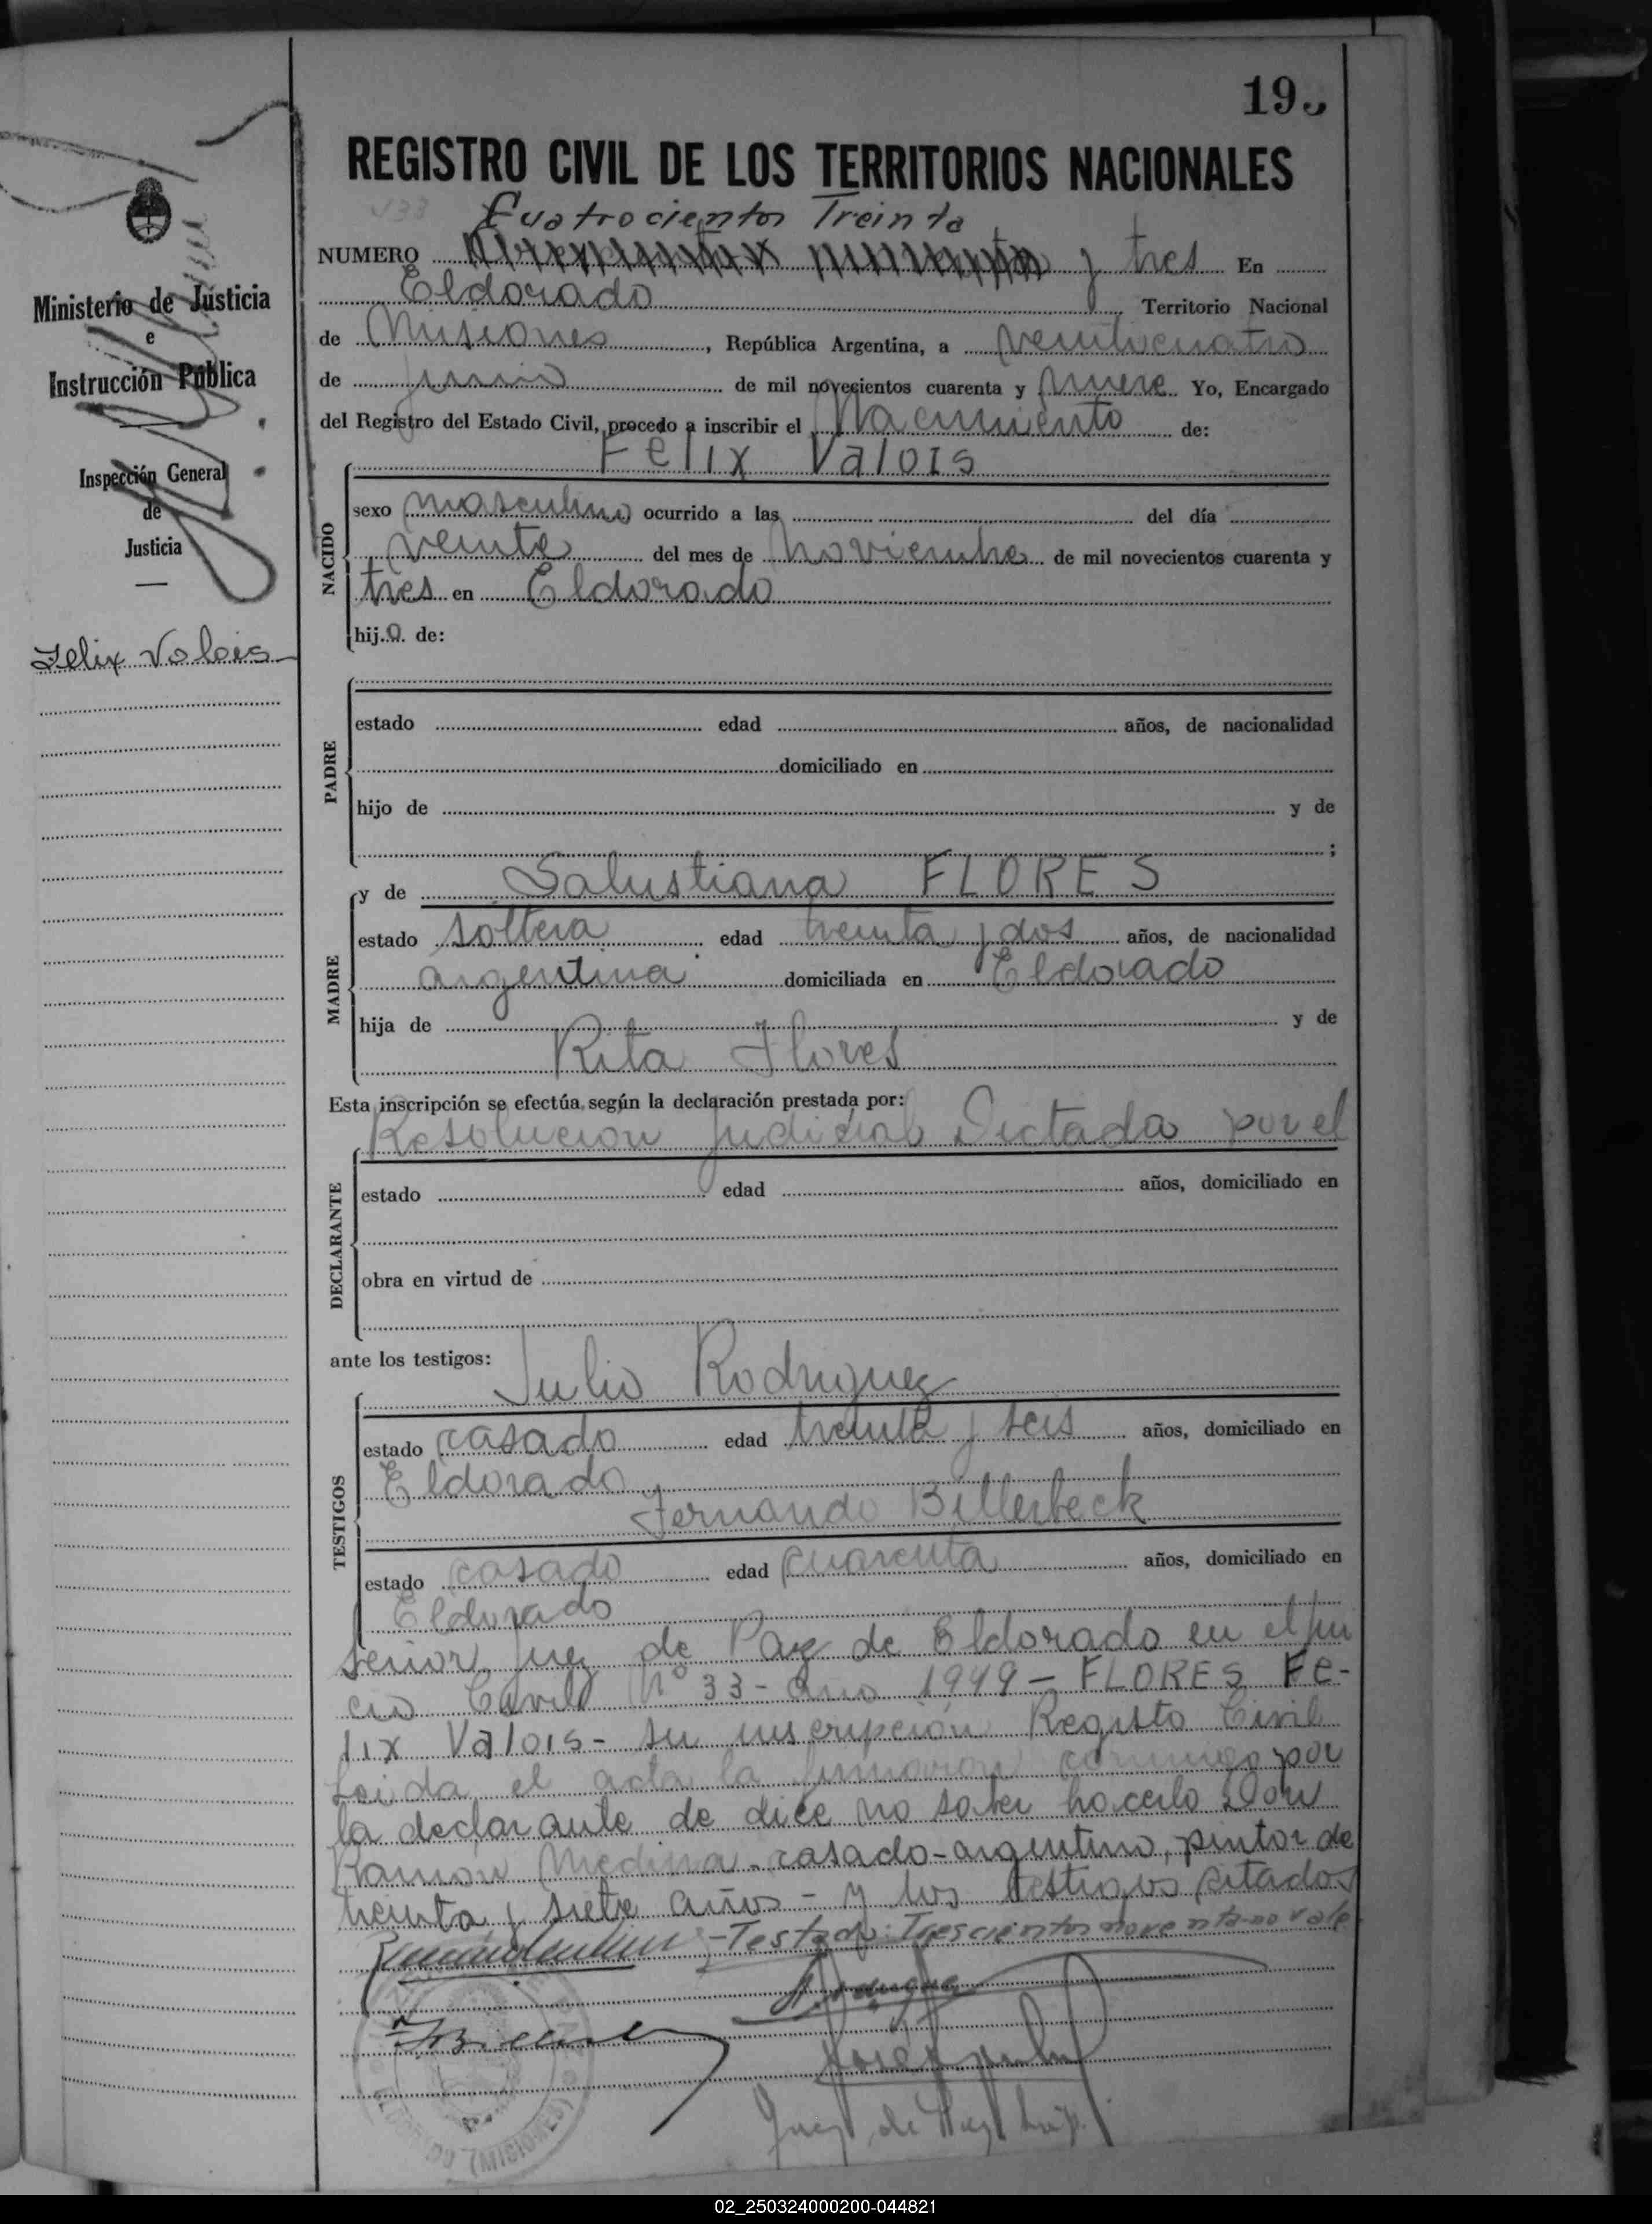 REGISTRO CIVIL DE LOS TERRITORIOS NACIONALES
433
Cuatrocientos Treinta
NUMERO y tres En
Eldorado Territorio Nacional
de Misiones, República Argentina, a veinticuatro
de junio de mil novecientos cuarenta y nueve Yo, Encargado
del Registro del Estado Civil, procedo a inscribir el Nacimiento de:
Felix Valois
NACIDO
sexo masculino ocurrido a las del día
veinte del mes de noviembre de mil novecientos cuarenta y
tres en Eldorado
hijo de:
PADRE
estado edad años, de nacionalidad
domiciliado en
hijo de y de
;
MADRE
y de Salustiana FLORES
estado soltera edad treinta y dos años, de nacionalidad
argentina domiciliada en Eldorado
hija de y de
Rita Flores
Esta inscripción se efectúa según la declaración prestada por:
Resolucion Judicial Dictada por el
DECLARANTE
estado edad años, domiciliado en
obra en virtud de
ante los testigos:
Julio Rodriguez
TESTIGOS
estado casado edad treinta y seis años, domiciliado en
Eldorado
Fernando Billerbeck
estado casado edad cuarenta años, domiciliado en
Eldorado
señor Juez de Paz de Eldorado en el jui
cio Civil Nº 33- año 1949 - FLORES Fe-
lix Valois- su inscripción Registo Civil
Leida el acta la firmaron conmigo por
la declarante de dice no saber hacerlo Don
Ramon Medina - casado-argentino, pintor de
treinta y siete años - y los testigos citados
-Testado: Trescientos noventa-no vale
Juez de Paz
(MISIONES)
Ministerio de Justicia
e
Instrucción Pública
Inspección General
de
Justicia
Felix Valois
02_250324000200-044821